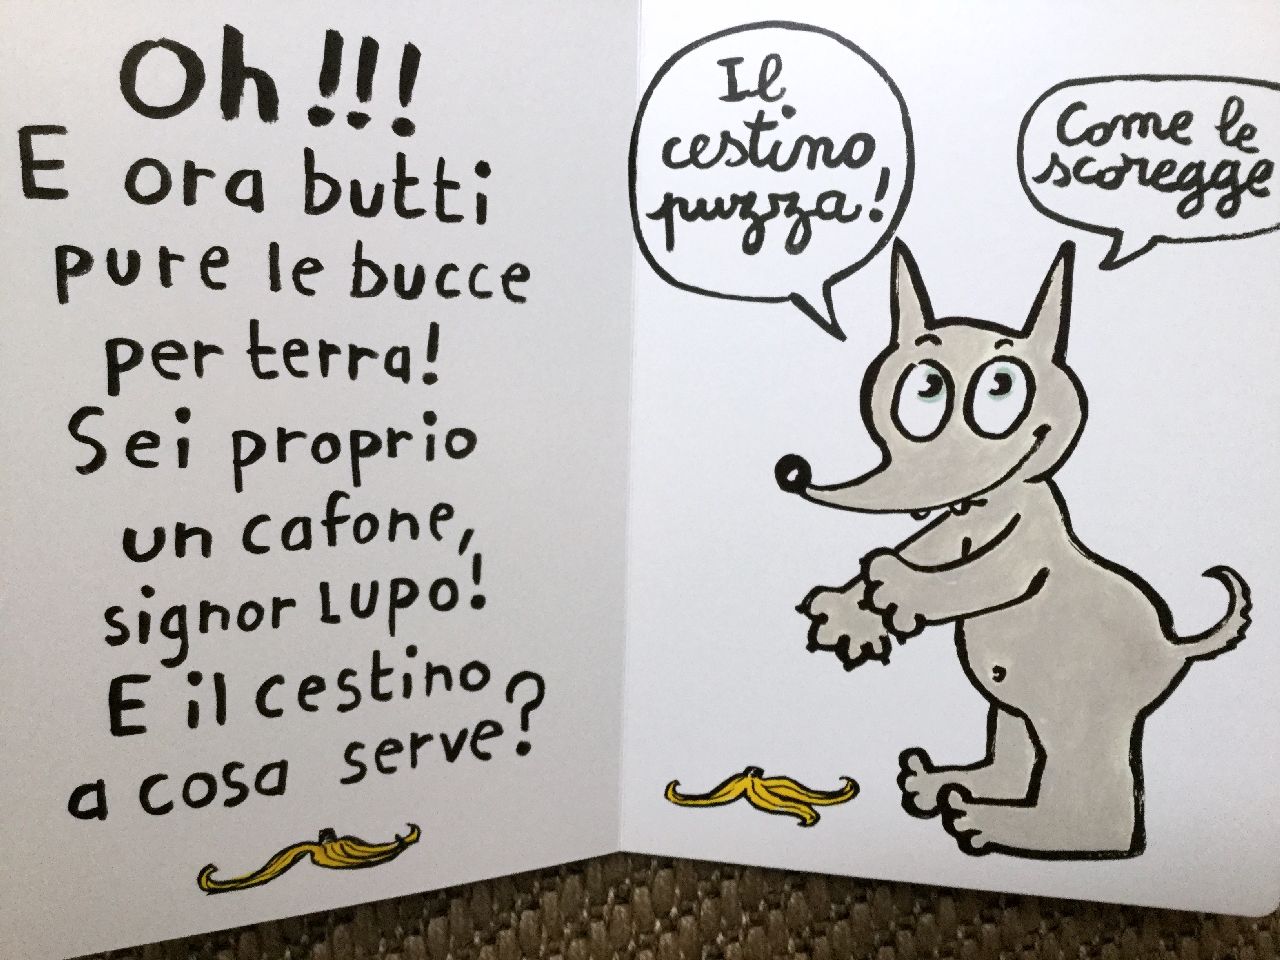 Oh!!!
E ora butti
pure le bucce
per terra!
Sei proprio
un cafone,
signor LUPO!
E il cestino
a cosa serve?
Il
cestino
puzza!
Come le
scoregge